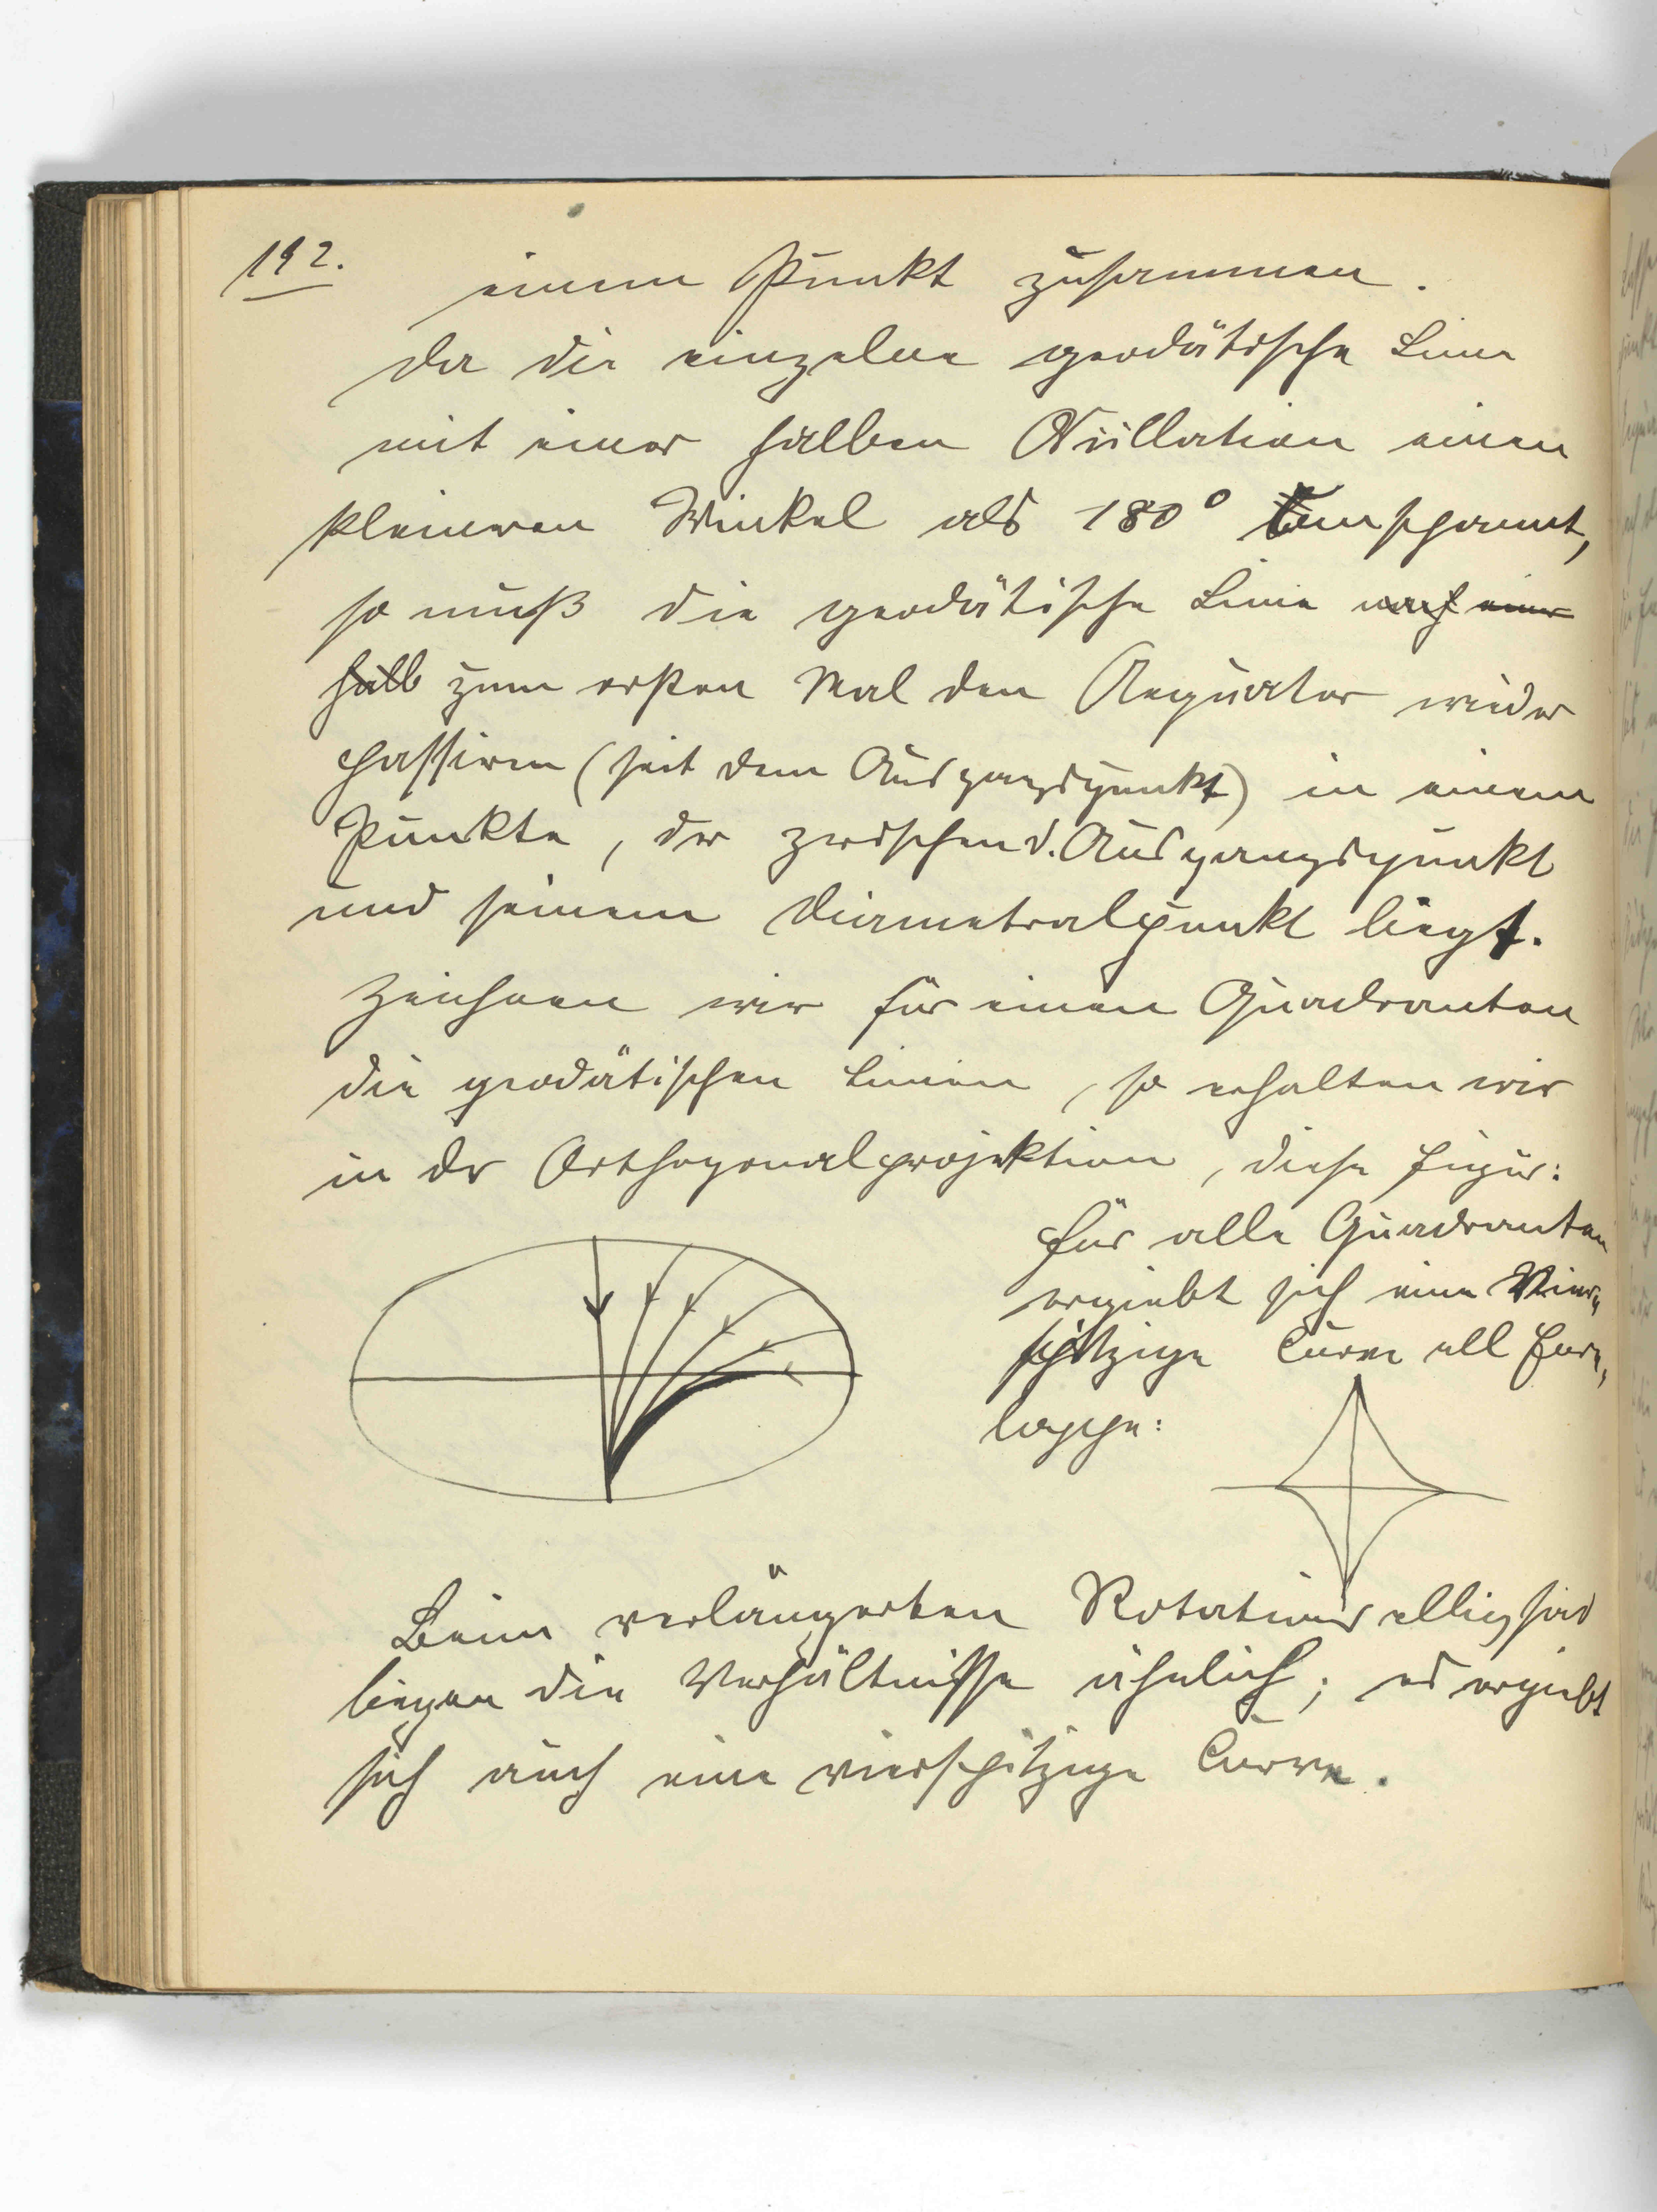 192.
einem Punkt zusammen.
Da die einzelne geodätische Linie
mit einer halben Oscillation einen
kleineren Winkel als 180° umspannt,
so muß die geodätische Linie nach einer
halb zum ersten Mal den Aequator wieder
passiren (seit dem Ausgangspunkt) in einem
Punkte, der zwischen d. Ausgangspunkt
und seinem Diametralpunkt liegt.
Zeichnen wir für einen Quadranten
die geodätischen Linien, so erhalten wir
in der Orthogonalprojektion, diese Figur:
Für alle Quadranten
ergiebt sich eine Vier„
spitzige Curve als Enve„
loppe:
Beim verlängerten Rotationsellipsoid
liegen die Verhältnisse ähnlich; es ergiebt
sich auch eine vierspitzige Curve.